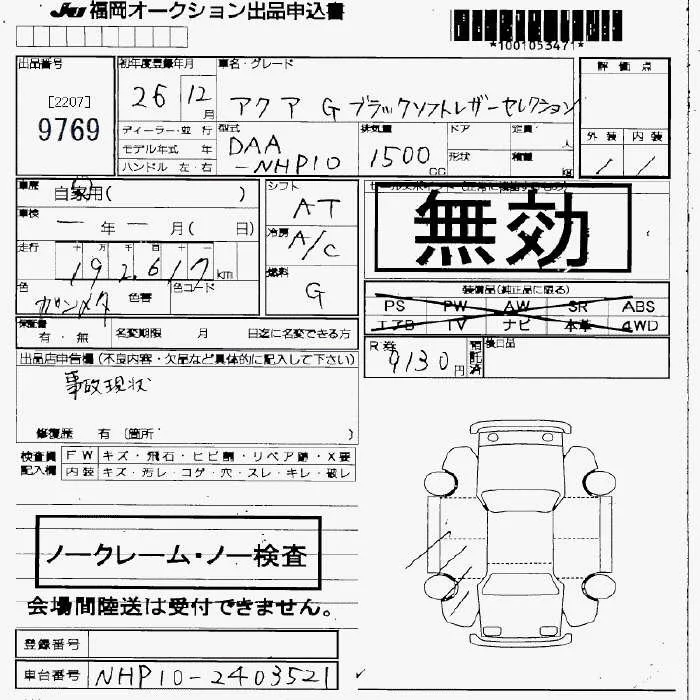 JU 福岡オークション出品申込書
*1001053471*
出品番号
[2207]
9769
初年度登録年月
26 12 月
車名・グレード
アクア G ブラックソフトレザーセレクション
評価点
外装 内装
/ /
ディーラー・並 行
モデル年式 年
ハンドル 左・右
型式
DAA
-NHP10
排気量
1500 CC
ドア
形状
定員 人
積載 kg
車歴
自家用( )
車検
― 年 ― 月( 日)
走行 十 万 千 百 十 一
192,617 km
色 ガンメタ 色替 色コード
シフト
AT
冷房
A/C
燃料
G
セールスポイント(正常に機能するもの)
無効
装備品(純正品に限る)
PS PW AW SR ABS
エアB TV ナビ 本革 4WD
保証書
有・無 名変期限 月 日迄に名変できる方
R券
9130 円
預託済
後日品
出品店申告欄(不良内容・欠品など具体的に記入して下さい)
事故現状
修復歴 有 〔箇所 〕
検査員 FW キズ・飛石・ヒビ割・リペア跡・X要
記入欄 内装 キズ・汚レ・コゲ・穴・スレ・キレ・破レ
ノークレーム・ノー検査
会場間陸送は受付できません。
登録番号
車台番号 NHP10-2403521